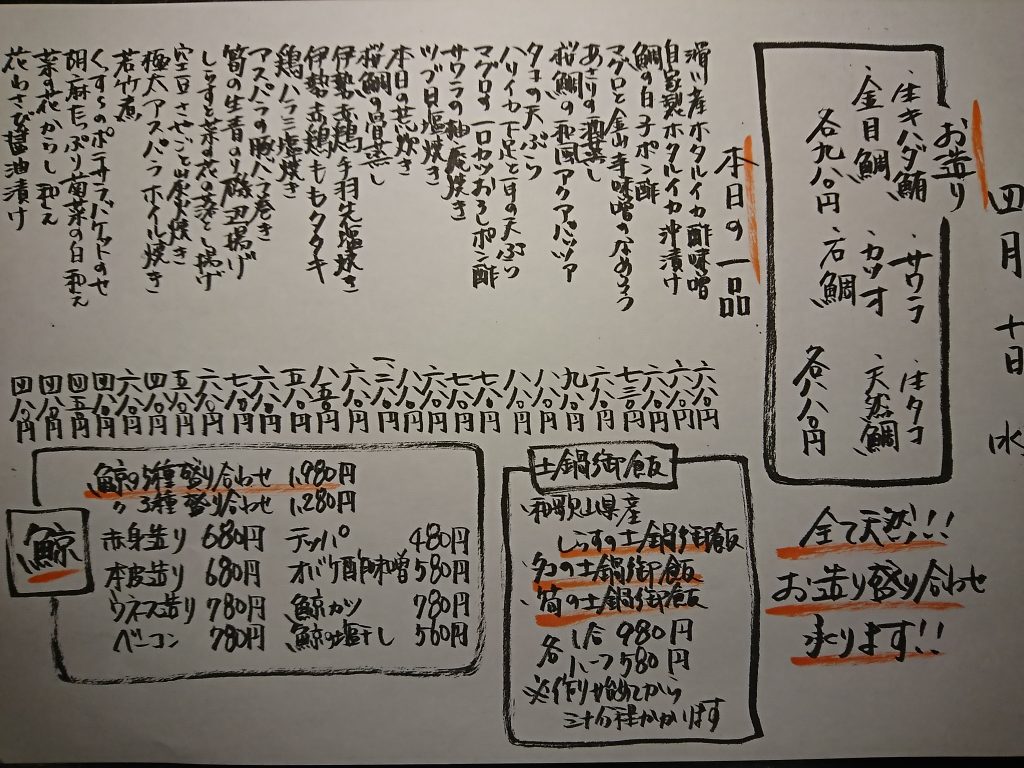 四月十日 水
お造り
・生キハダ鮪 ・サワラ ・生タコ
・金目鯛 ・カツオ ・天然鯛
各九八〇円 ・石鯛 各八八〇円
全て天然!!!
お造り盛り合わせ
承ります!!
本日の一品
滑川産ホタルイカ酢味噌 六八〇円
自家製ホタルイカ沖漬け 六八〇円
鯛の白子ポン酢 六八〇円
マグロと金山寺味噌のなめろう 七三〇円
あさりの酒蒸し 六八〇円
桜鯛の和風アクアパッツァ 九八〇円
タコの天ぷら 八八〇円
ハリイカ下足と耳の天ぷら 八八〇円
マグロの一口カツおろしポン酢 七八〇円
サワラの柚庵焼き 七八〇円
ツブ貝塩焼き 六八〇円
本日の荒炊き 八八〇円
桜鯛の骨蒸し
伊勢赤鶏手羽先塩焼き 六八〇円
伊勢赤鶏ももタタキ 八五〇円
鶏ハラミ塩焼き 五八〇円
アスパラの豚バラ巻き 六八〇円
筍の生青のり磯辺揚げ 七八〇円
しらすと菜の花の落とし揚げ 六八〇円
空豆さやごと炭火焼き 五八〇円
極太アスパラホイル焼き 四八〇円
若竹煮 六八〇円
くんすらのポテサラバケットのせ 四八〇円
胡麻たっぷり菊菜の白和え 四五〇円
菜の花からし和え 四八〇円
花わさび醤油漬け 四八〇円
土鍋御飯
・和歌山県産
しらすの土鍋御飯
・タコの土鍋御飯
・筍の土鍋御飯
各 1合 980円
ハーフ 580円
※作り始めてから
三十分程かかります
鯨
鯨の5種盛り合わせ 1,980円
〃 3種盛り合わせ 1,280円
赤身造り 680円 テッパ 480円
本皮造り 680円 オバケ酢味噌 580円
ウネス造り 780円 鯨カツ 780円
ベーコン 780円 鯨の塩干し 560円